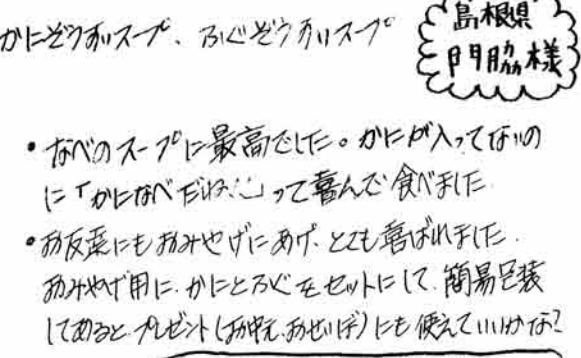 かにぞうすいスープ、ふぐぞうすいスープ
島根県
門脇様
・なべのスープに最高でした。かにが入ってないの
に「かになべだね」って喜んで食べました
・お友達にもおみやげにあげ、とても喜ばれました。
おみやげ用に、かにとふぐをセットにして、簡易包装
してあると、プレゼント(お中元、おせいぼ)にも使えていいかな?